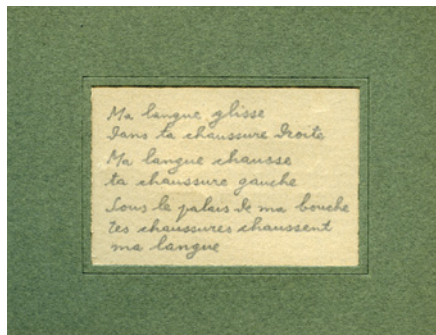 Ma langue glisse
Dans ta chaussure Droite
Ma langue chausse
ta chaussure gauche
Sous le palais de ma bouche
tes chaussures chaussent
ma langue